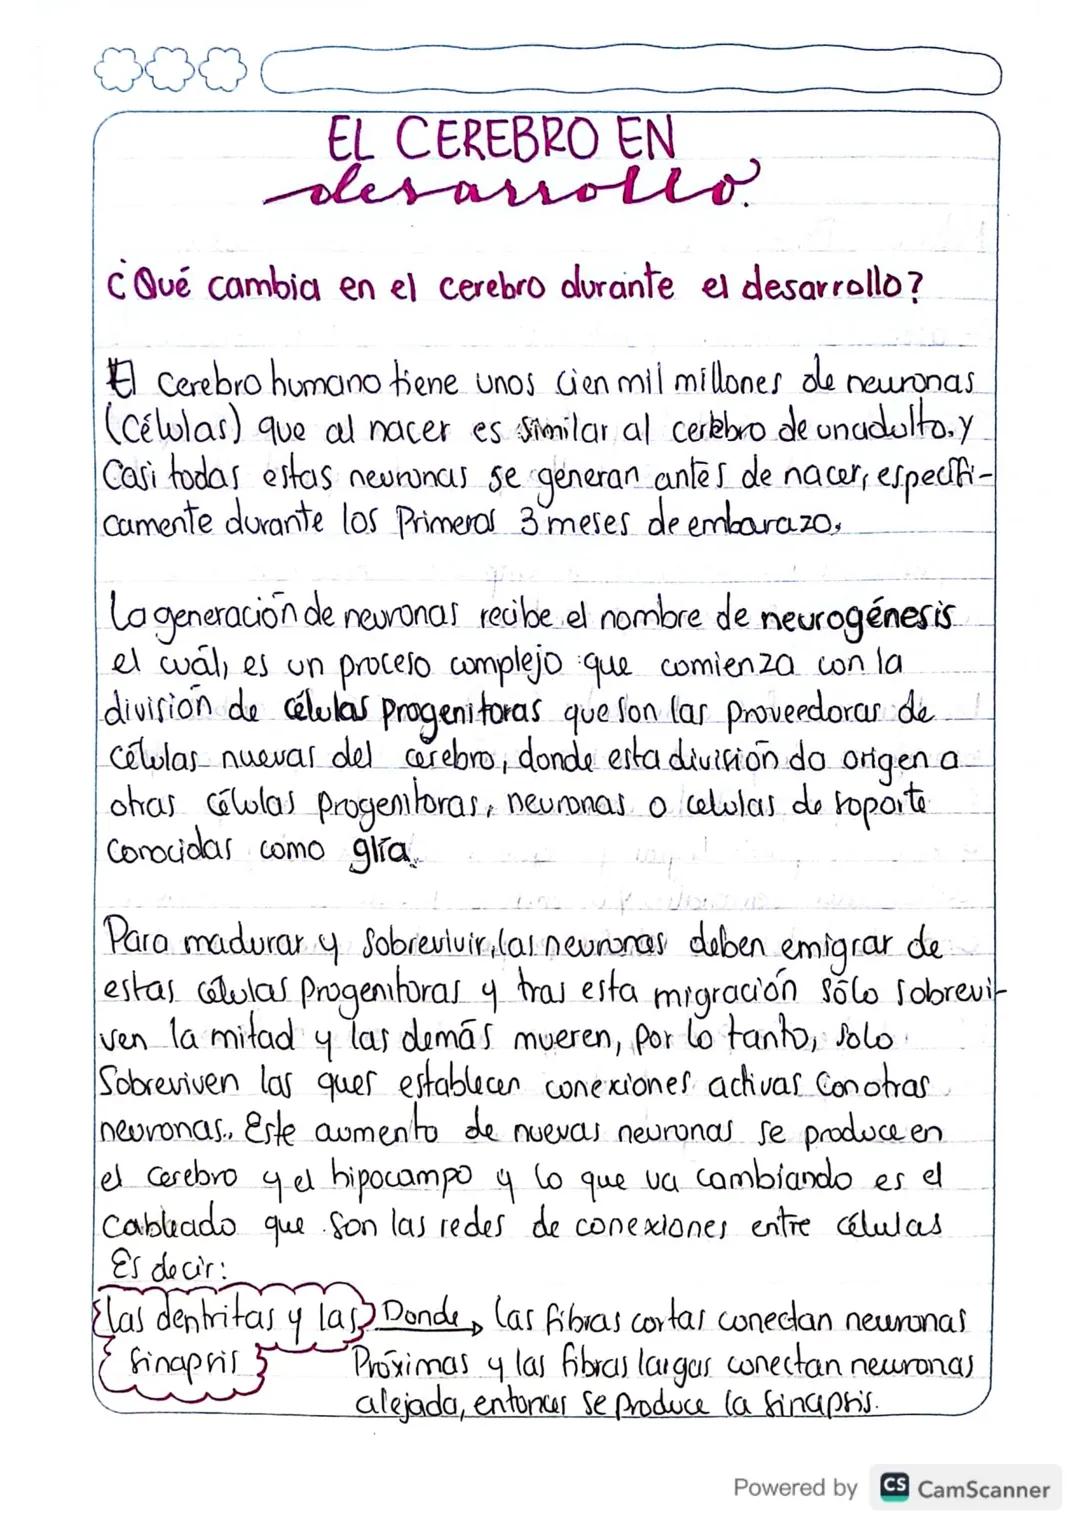 EL CEREBRO EN
desarrollo.
¿Qué cambia en el cerebro durante el desarrollo?
El cerebro humano tiene unos cien mil millones de neuronas
(Células) que al nacer es similar al cerebro de un adulto. y
Casi todas estas neuronas se generan antes de nacer, especifi-
camente durante los Primeros 3 meses de embarazo.
La generación de neuronas recibe el nombre de neurogénesis
el cuál, es un proceso complejo que comienza con la
división de células progenitoras que son las proveedoras de
células nuevas del cerebro, donde esta división da origen a
otras células progenitoras, neuronas o celulas de soporte
conocidas como glía.
Para madurar y sobrevivir, las neuronas deben emigrar de
estas células progenitoras y tras esta migración sólo sobrevi-
ven la mitad y las demás mueren, por lo tanto, solo
Sobreviven las ques establecen conexiones activas con otras
neuronas. Este aumento de nuevas neuronas se produce en
el cerebro y el hipocampo y lo que va cambiando es el
Cableado que son las redes de conexiones entre células
Es decir:
las dentritas y las Donde → las fibras cortas conectan neuronas
sinapsis Próximas y las fibras largas conectan neuronas
alejada, entonces se produce la sinapsis.
Powered by CS CamScanner